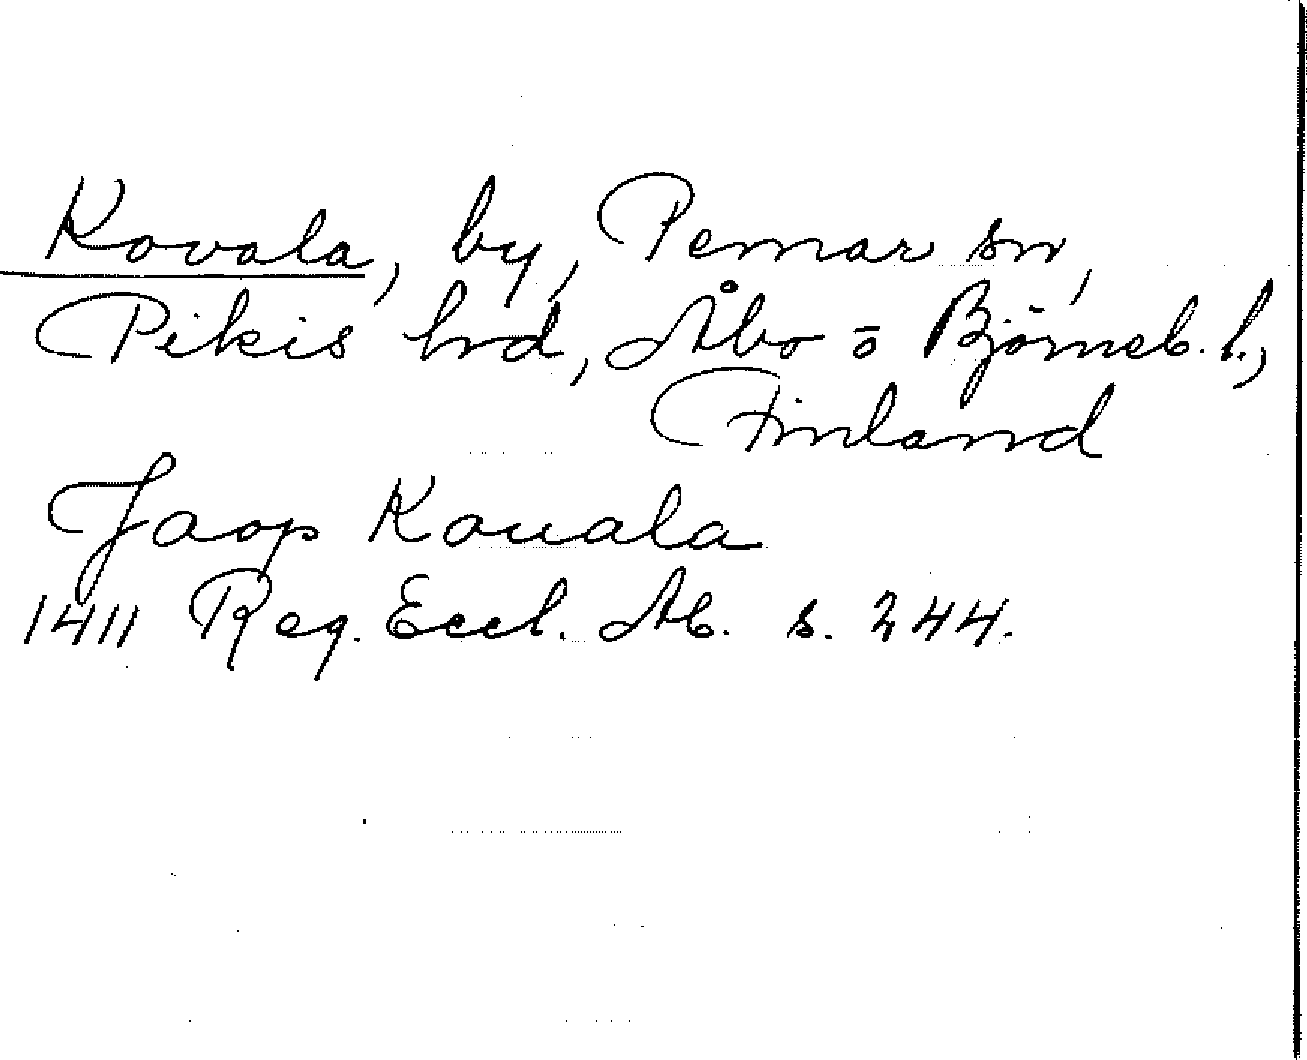 Kovala, by, Pemar sn,
Pikis hrd, Åbo o Björneb. l.,
Finland
Jaop Kouala
1411 Reg. Eccl. Ab. s. 244.